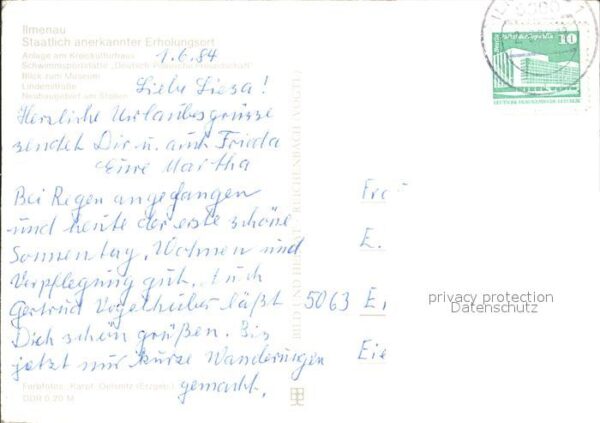 Ilmenau
Staatlich anerkannter Erholungsort
Anlage am Kreiskulturhaus
Schwimmsportstätte „Deutsch-Polnische Freundschaft“
Blick zum Museum
Lindenstraße
Neubaugebiet am Stollen
1.6.84
Liebe Liesa!
Herzliche Urlaubsgrüsse
sendet Dir u. auch Frieda
Eure Martha
Bei Regen angefangen
und heute der erste schöne
Sonnentag. Wohnen und
Verpflegung gut. Auch
Gertrud Vogelhuber läßt
Dich schön grüßen. Bis
jetzt nur kurze Wanderungen
gemacht.
Farbfotos: Karpf, Oelsnitz (Erzgeb.)
DDR 0,20 M
10
DEUTSCHE DEMOKRATISCHE REPUBLIK
Fra
E.
5063 E
Eie
privacy protection
Datenschutz